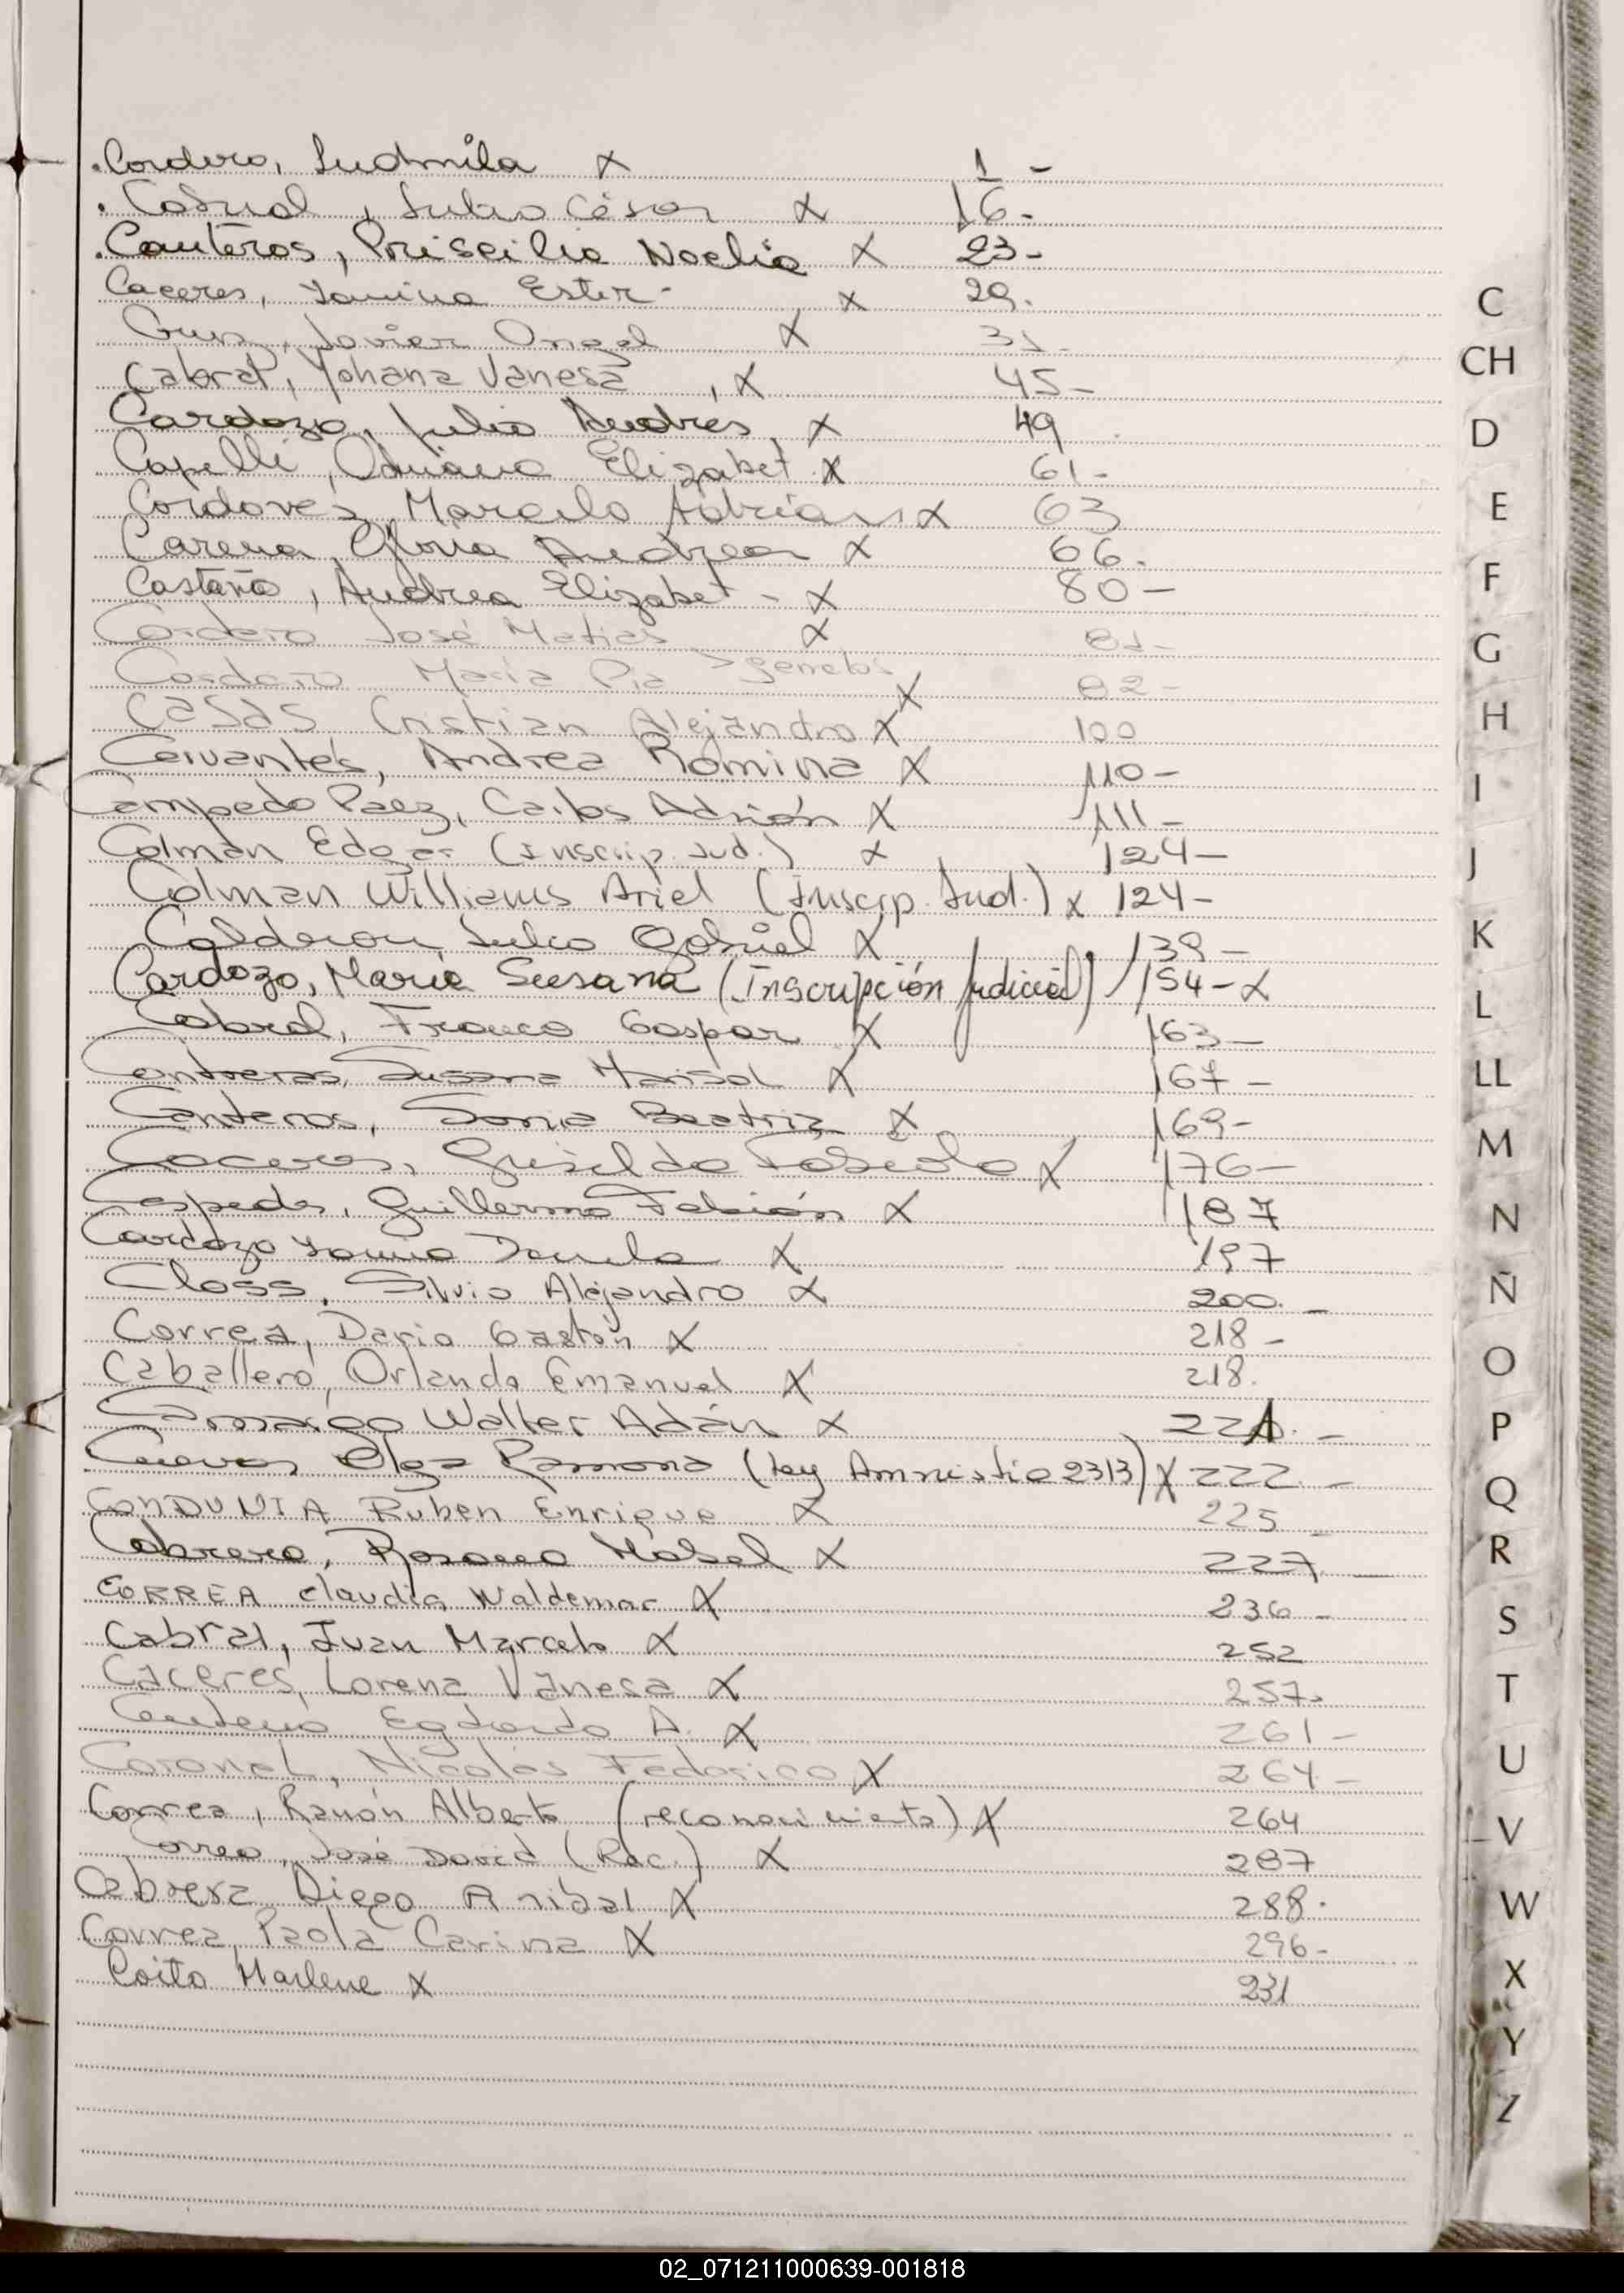 .Cordero, Ludmila X 1 -
. Cabral, Julio César X 16.
.Canteros, Priscilia Noelia X 23-
Caceres, Yanina Ester- X 29.
Cruz, Javier Angel X 31-
Cabral, Yohana Vanesa , X 45-
Cardozo, Julio Andrés, X 49
Capelli, Adriana Elizabet X 61-
Cordoves Marcelo Adrian X 63
Carena, Gloria Andrea X 66.
Castaño, Andrea Elizabet - X 80-
Cordero José Matias X 81-
Cordero María Pia > gemelos X 82-
Casas Cristian Alejandro X 100
Cervantes, Andrea Romina X 110-
Campedo Páez, Carlos Adrián X 111-
Colman Edgar (Inscrip. Jud.) X 124-
Colman Williams Ariel (Inscrip. Jud.) X 124-
Calderon Julio Gabriel X 139-
Cardozo, María Susana (Inscripción Judicial) 154-X
Cabral, Franco Gaspar X 163-
Contreras, Susana Marisol X 167-
Canteros, Sonia Beatriz X 169-
Caceres, Griselda Fabiola X 176-
Cespedes, Guillermo Fabián X 187
Cardozo Danila X 197
Closs, Silvio Alejandro X 200.-
Correa, Dario Gastón X 218-
Caballero, Orlando Emanuel X 218.
Camargo Walter Adán X 221.-
Cuevas Olga Ramona (Ley Amnistia 2313) X 222-
CONDUNIA Ruben Enrique X 225-
Cabrera, Rosana Mabel X 227-
CORREA Claudia Waldemar X 236-
Cabral, Juan Marcelo X 252
Caceres, Lorena Vanesa X 257.
Centeno Egdardo A. X 261-
Coronel, Nicolás Federico X 264-
Correa, Ramón Alberto (reconocimiento) X 264
Correa, José David (Rec.) X 287
Cabrera Diego Anibal X 288.
Correa, Paola Carina X 296-
Coito Marlene X 231
C
CH
D
E
F
G
H
I
J
K
L
LL
M
N
Ñ
O
P
Q
R
S
T
U
V
W
X
Y
Z
02_071211000639-001818